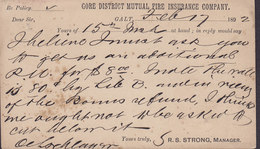 Re Policy GORE DISTRICT MUTUAL FIRE INSURANCE COMPANY.
GALT, Feb 17 1892
Dear Sir,
Yours of 15th Inst at hand; in reply would say
I believe I must ask you
to get us an additional
P.N. for $8.00. I note the rate
is 80. by Cl B. and in view
of the Bonus refund, I think
we ought not to be asked to
cut below it
Yours truly, R. S. STRONG, MANAGER.